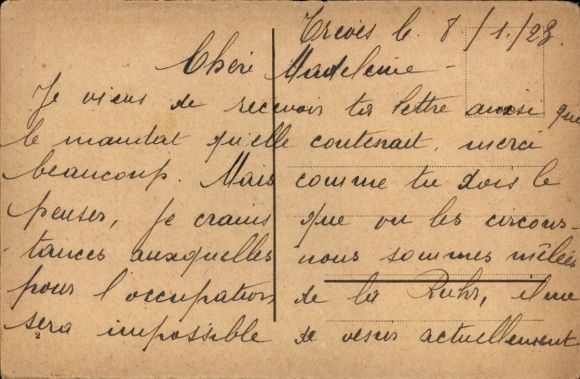 Trèves le 8/1/23.
Chère Madeleine -
Je viens de recevoir ta lettre aussi que
le mandat qu'elle contenait, merci
beaucoup. Mais comme tu dois le
penser, je crains que vu les circons-
-tances auxquelles nous sommes mêlées
pour l'occupation de la Ruhr, il me
sera impossible de venir actuellement